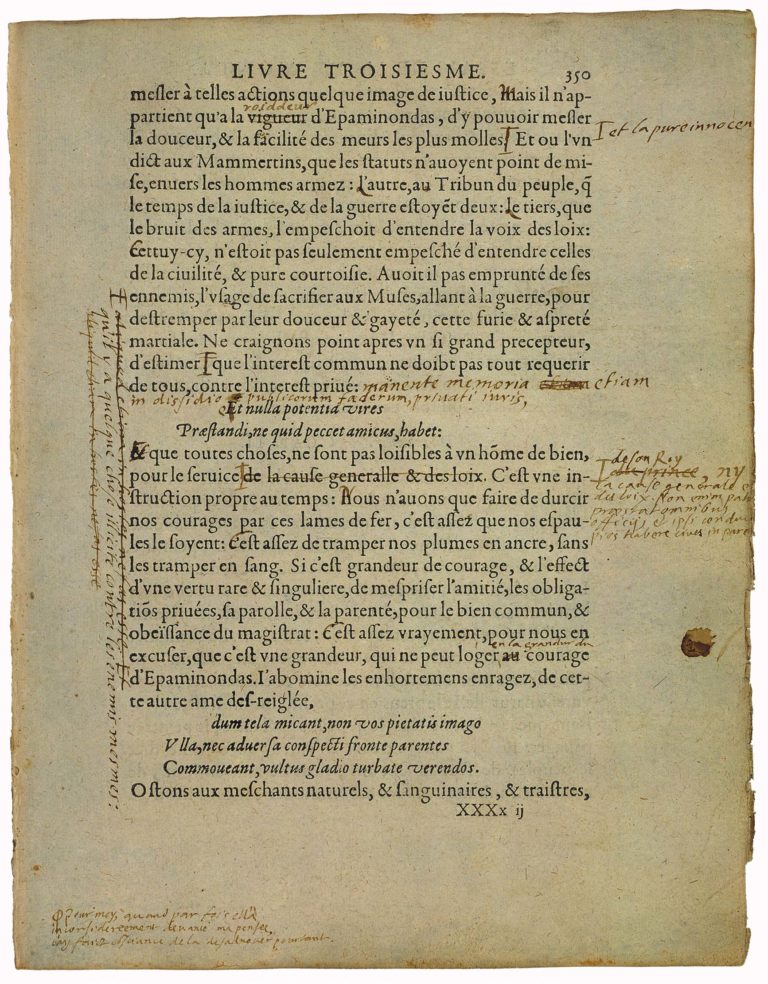 LIVRE TROISIESME. 350
mesler à telles actions quelque image de iustice, Mais il n'ap-
partient qu'a la vigueur d'Epaminondas, d'ÿ pouuoir mesler
la douceur, & la facilité des meurs les plus molles Et ou l'vn
et la pure innocen
dict aux Mammertins, que les statuts n'auoyent point de mi-
se, enuers les hommes armez : L'autre, au Tribun du peuple, q̃
le temps de la iustice, & de la guerre estoyẽt deux: le tiers, que
le bruit des armes, l'empeschoit d'entendre la voix des loix:
Cettuy-cy, n'estoit pas seulement empesché d'entendre celles
de la ciuilité, & pure courtoisie. Auoit il pas emprunté de ses
ennemis, l'vsage de sacrifier aux Muses, allant à la guerre, pour
destremper par leur douceur & gayeté, cette furie & aspreté
martiale. Ne craignons point apres vn si grand precepteur,
d'estimer que l'interest commun ne doibt pas tout requerir
de tous, contre l'interest priué: manente memoria etiam
in dissidio publicorum fœderum, priuati iuris,
Et nulla potentia vires
Præstandi, ne quid peccet amicus, habet:
& que toutes choses, ne sont pas loisibles à vn hõme de bien,
pour le seruice de la cause generalle & des loix. C'est vne in-
de son Roy
ny
la cause generale e
des loix. Non enim pat
præstat omnibus
officiis, et ipsi condu
pios habere ciues in pare
struction propre au temps: Nous n'auons que faire de durcir
nos courages par ces lames de fer, c'est assez que nos espau-
les le soyent: C'est assez de tramper nos plumes en ancre, sans
les tramper en sang. Si c'est grandeur de courage, & l'effect
d'vne vertu rare & singuliere, de mespriser l'amitié, les obliga-
tiõs priuées, sa parolle, & la parenté, pour le bien commun, &
obeïssance du magistrat : C'est assez vrayement, pour nous en
en la grandeur du
excuser, que c'est vne grandeur, qui ne peut loger au courage
d'Epaminondas. I'abomine les enhortemens enragez, de cet-
te autre ame des-reiglée,
dum tela micant, non vos pietatis imago
Vlla, nec aduersa conspecti fronte parentes
Commoueant, vultus gladio turbate verendos.
Ostons aux meschants naturels, & sanguinaires, & traistres,
XXXx ij
qu'il y a quelque chose illicite contre les enemis mesmes:
quand par fois ell
inconsidereement deuance ma pensee
de la desaduouer pourtant.